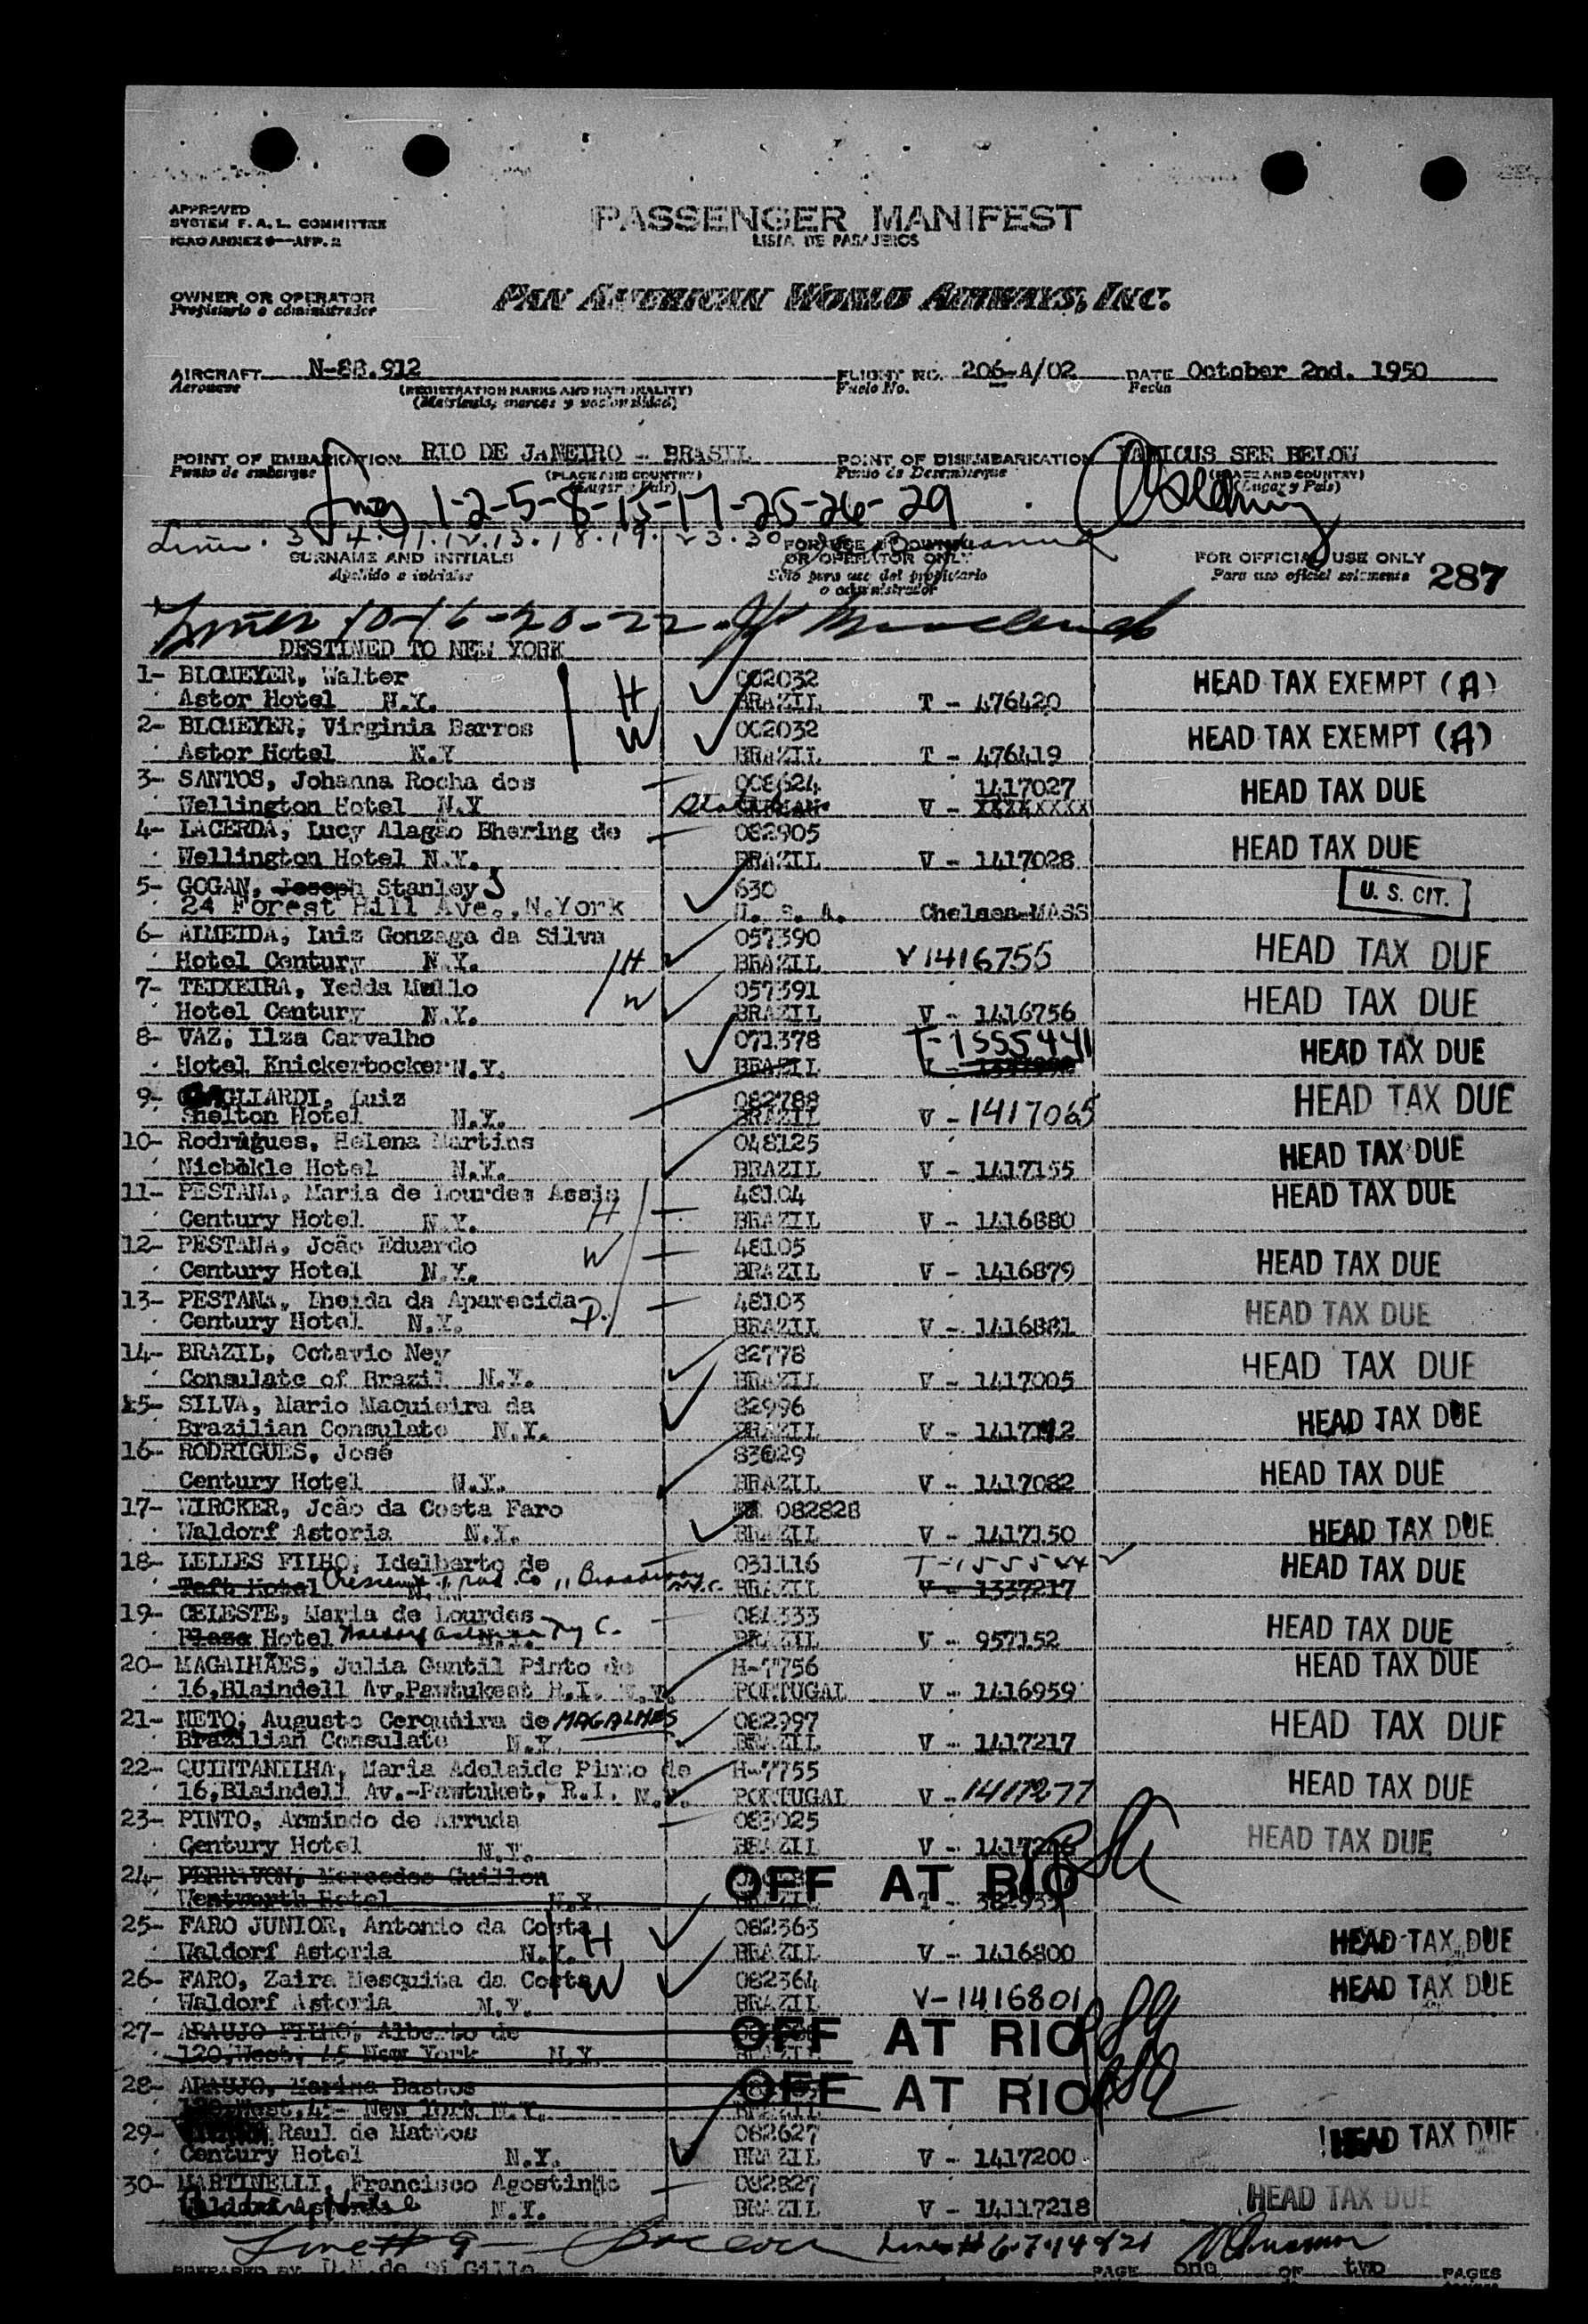 APPROVED
SYSTEM F.A.L. COMMITTEE
ICAO ANNEX 9—APP. 2
PASSENGER MANIFEST
LISTA DE PASAJEROS
OWNER OR OPERATOR
Propietario o administrador
PAN AMERICAN WORLD AIRWAYS, INC.
AIRCRAFT N-88.912 FLIGHT NO. 206-A/02 DATE October 2nd. 1950
Aeronave (REGISTRATION MARKS AND NATIONALITY) Vuelo No. Fecha
(Matricula, marcas y nacionalidad)
POINT OF EMBARKATION RIO DE JANEIRO - BRASIL POINT OF DISEMBARKATION VARIOUS SEE BELOW
Punto de embarque (PLACE AND COUNTRY) Punto de Desembarque (PLACE AND COUNTRY)
(Lugar y País) (Lugar y País)
1-2-5-8-15-17-25-26-29
3. 4. 11. 12. 13. 18. 19. 23. 30
SURNAME AND INITIALS FOR USE BY OWNER OR OPERATOR ONLY FOR OFFICIAL USE ONLY
Apellido e iniciales Sólo para uso del propietario o administrador Para uso oficial solamente 287
Lines 10-16-20-22
DESTINED TO NEW YORK
1- BLOMEYER, Walter 002032 HEAD TAX EXEMPT (A)
Astor Hotel N.Y. H BRAZIL T - 476420
2- BLOMEYER, Virginia Barros 002032 HEAD TAX EXEMPT (A)
Astor Hotel N.Y W BRAZIL T - 476419
3- SANTOS, Johanna Rocha dos 008624 1417027 HEAD TAX DUE
Wellington Hotel N.Y V - XXXXXXXX
4- LACERDA, Lucy Alagão Bhering de 082905 HEAD TAX DUE
Wellington Hotel N.Y. BRAZIL V - 1417028
5- GOGAN, Joseph Stanley J 630 U. S. CIT.
24 Forest Hill Ave., N.York U. S. A. Chelsea-MASS
6- ALMEIDA, Luiz Gonzaga da Silva 057390 HEAD TAX DUE
Hotel Century N.Y. H BRAZIL V 1416755
7- TEIXEIRA, Yedda Mello 057391 HEAD TAX DUE
Hotel Century N.Y. W BRAZIL V - 1416756
8- VAZ, Ilza Carvalho 071378 T-1555441 HEAD TAX DUE
Hotel Knickerbocker N.Y. BRAZIL
9- GLIARDI, Luiz 082788 HEAD TAX DUE
Shelton Hotel N.Y. BRAZIL V - 1417065
10- Rodrigues, Helena Martins 048125 HEAD TAX DUE
Hotel N.Y. BRAZIL V - 1417155
11- PESTANA, Maria de Lourdes Assis 48104 HEAD TAX DUE
Century Hotel N.Y. H BRAZIL V - 1416880
12- PESTANA, João Eduardo 48105 HEAD TAX DUE
Century Hotel N.Y. W BRAZIL V - 1416879
13- PESTANA, Eneida da Aparecida 48103 HEAD TAX DUE
Century Hotel N.Y. D. BRAZIL V - 1416881
14- BRAZIL, Octavio Ney 82778 HEAD TAX DUE
Consulate of Brazil N.Y. BRAZIL V - 1417005
15- SILVA, Mario Maquieira da 82996 HEAD TAX DUE
Brazilian Consulate N.Y. BRAZIL V -
16- RODRIGUES, José 83029 HEAD TAX DUE
Century Hotel N.Y. BRAZIL V - 1417082
17- WIRCKER, João da Costa Faro 082828 HEAD TAX DUE
Waldorf Astoria N.Y. BRAZIL V - 1417150
18- LELLES FILHO, Idelberto de 031116 HEAD TAX DUE
Taft Hotel Broadway N.Y.C. BRAZIL V - 1337217
19- CELESTE, Maria de Lourdes 084333 HEAD TAX DUE
Plaza Hotel Waldorf Astoria N.Y.C. BRAZIL V - 957152
20- MAGALHÃES, Julia Gentil Pinto de H-7756 HEAD TAX DUE
16,Blaindell Av.Pawtukest R.I. N.Y. PORTUGAL V - 1416959
21- NETO, Augusto Cerqueira de MAGALHES 082997 HEAD TAX DUE
Brazilian Consulate N.Y. BRAZIL V - 1417217
22- QUINTANILHA, Maria Adelaide Pinto de H-7755 HEAD TAX DUE
16,Blaindell Av.-Pawtuket, R.I. N.Y. PORTUGAL V - 1417277
23- PINTO, Armindo de Arruda 083025 HEAD TAX DUE
Century Hotel N.Y. BRAZIL V -
24- Mercedes Guillon OFF AT RIO
Wentworth Hotel N.Y. BRAZIL T -
25- FARO JUNIOR, Antonio da Costa 082363 HEAD TAX DUE
Waldorf Astoria N.Y. H BRAZIL V - 1416800
26- FARO, Zaira Mesquita da Costa 082364 HEAD TAX DUE
Waldorf Astoria N.Y. W BRAZIL V-1416801
27- ARAUJO FILHO, Alberto de OFF AT RIO
120,West, 45 New York N.Y.
28- ARAUJO, Marina Bastos OFF AT RIO
120,West,45- New York N.Y. BRAZIL
29- Raul de Mattos 082627 HEAD TAX DUE
Century Hotel N.Y. BRAZIL V - 1417200
30- MARTINELLI, Francisco Agostinho 082827 HEAD TAX DUE
N.Y. BRAZIL V - 14117218
Line # 9 Lines # 6-7-14 & 21
PREPARED BY PAGE one OF two PAGES